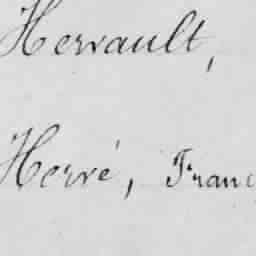 Hervault,
Hervé, Franc